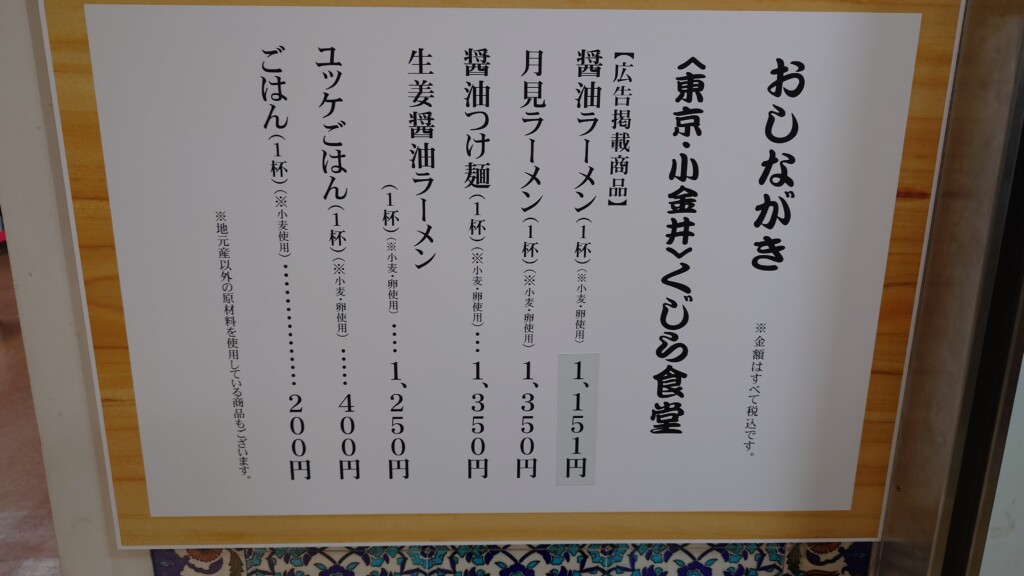 おしながき
※金額はすべて税込です。
〈東京・小金井〉くじら食堂
【広告掲載商品】
醤油ラーメン(1杯)(※小麦・卵使用) 1,151円
月見ラーメン(1杯)(※小麦・卵使用) 1,350円
醤油つけ麺(1杯)(※小麦・卵使用)… 1,350円
生姜醤油ラーメン
(1杯)(※小麦・卵使用)…… 1,250円
ユッケごはん(1杯)(※小麦・卵使用)…… 400円
ごはん(1杯)(※小麦使用)……………… 200円
※地元産以外の原材料を使用している商品もございます。